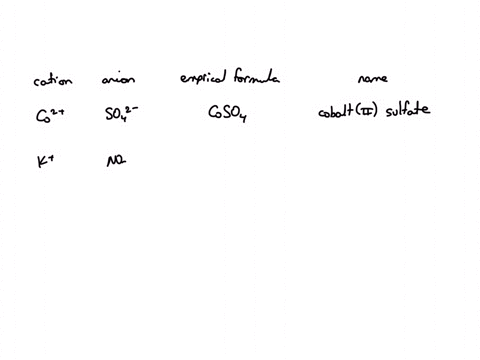 cation anion emprical formula name
Co²⁺ SO₄²⁻ CoSO₄ cobalt(II) sulfate
K⁺ NO₂